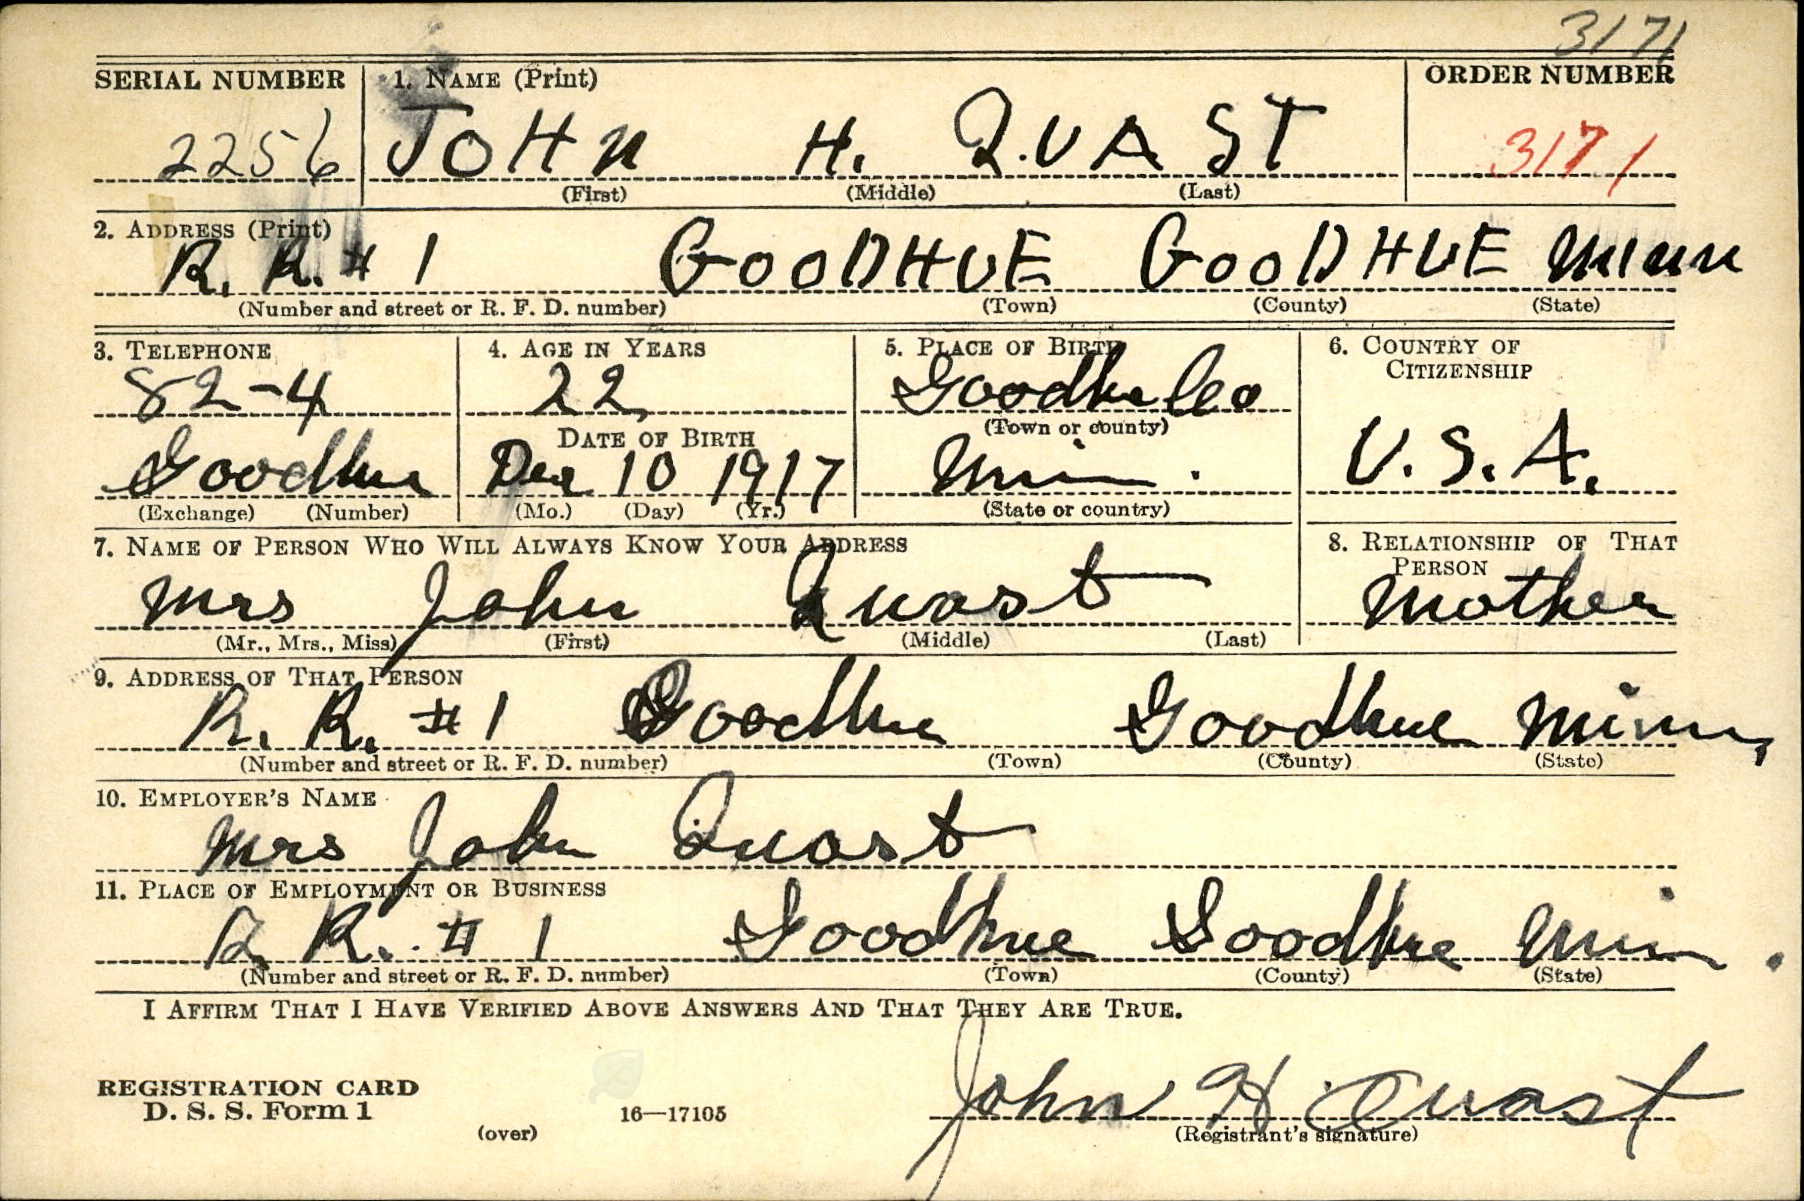 3171
SERIAL NUMBER 1. NAME (Print) ORDER NUMBER
2256 JOHN H. QUAST 3171
(First) (Middle) (Last)
2. ADDRESS (Print)
R. R. # 1 GOODHUE GOODHUE MINN
(Number and street or R. F. D. number) (Town) (County) (State)
3. TELEPHONE 4. AGE IN YEARS 5. PLACE OF BIRTH 6. COUNTRY OF
CITIZENSHIP
82-4 22 Goodhue Co
DATE OF BIRTH (Town or county)
Goodhue Dec 10 1917 Minn. U.S.A.
(Exchange) (Number) (Mo.) (Day) (Yr.) (State or country)
7. NAME OF PERSON WHO WILL ALWAYS KNOW YOUR ADDRESS 8. RELATIONSHIP OF THAT
PERSON
Mrs John Quast Mother
(Mr., Mrs., Miss) (First) (Middle) (Last)
9. ADDRESS OF THAT PERSON
R. R. # 1 Goodhue Goodhue Minn,
(Number and street or R. F. D. number) (Town) (County) (State)
10. EMPLOYER'S NAME
Mrs John Quast
11. PLACE OF EMPLOYMENT OR BUSINESS
R R. # 1 Goodhue Goodhue Minn.
(Number and street or R. F. D. number) (Town) (County) (State)
I AFFIRM THAT I HAVE VERIFIED ABOVE ANSWERS AND THAT THEY ARE TRUE.
REGISTRATION CARD
D. S. S. Form 1
(over) 16—17105
John H Quast
(Registrant's signature)